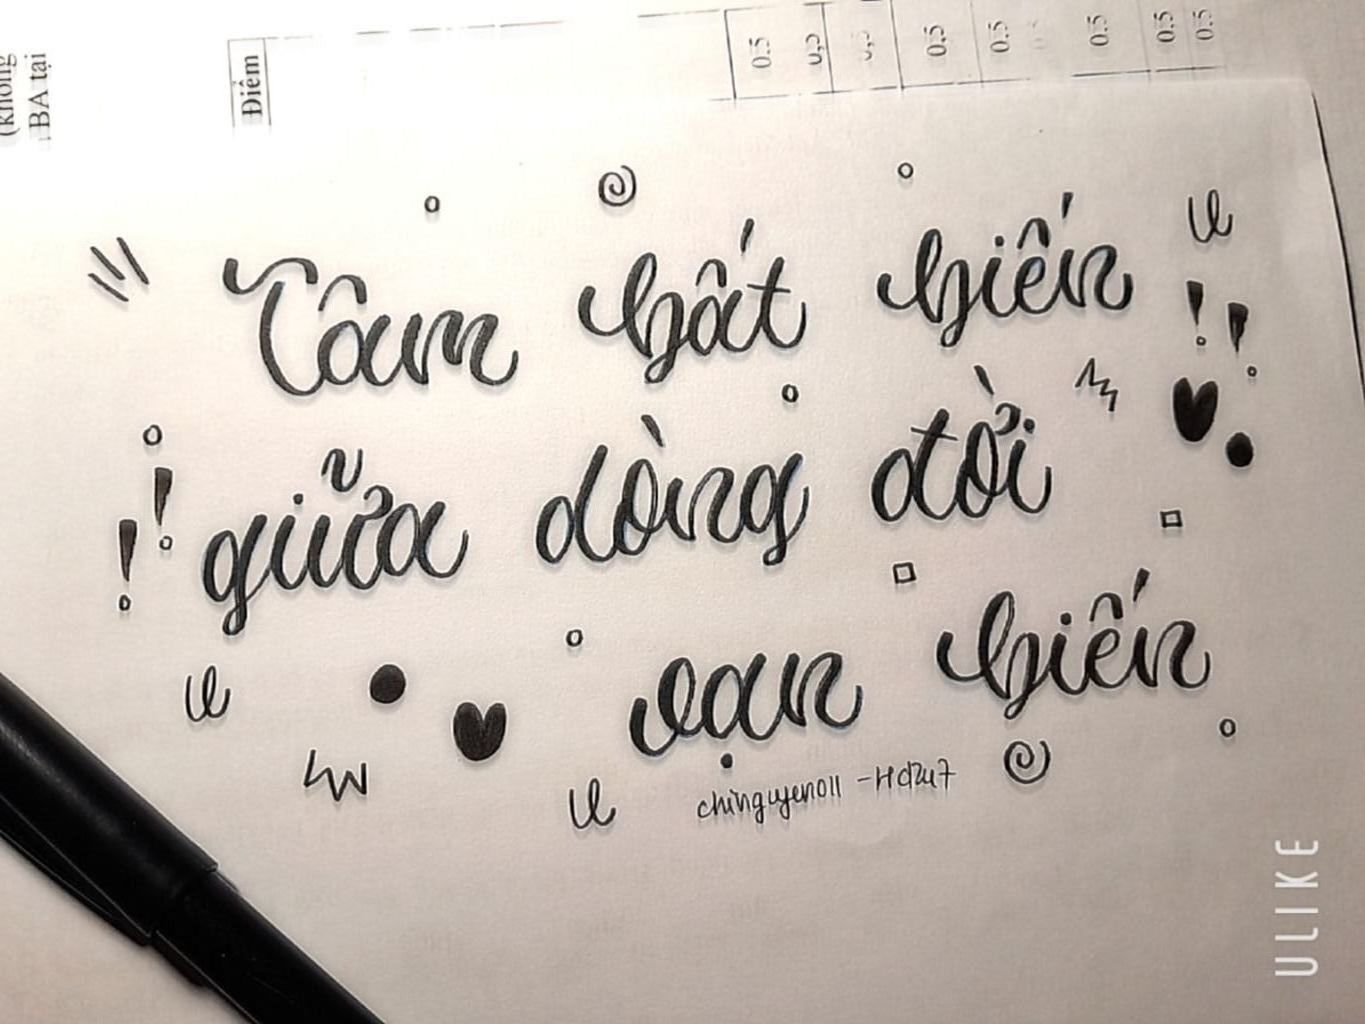 (không
BA tại
Điểm
0.5
0,5
0.5
0.5
0.5
0.5
0.5
Tâm bất biến
giữa dòng đời
vạn biến
chinguyen011 - Hd2u7
ULIKE